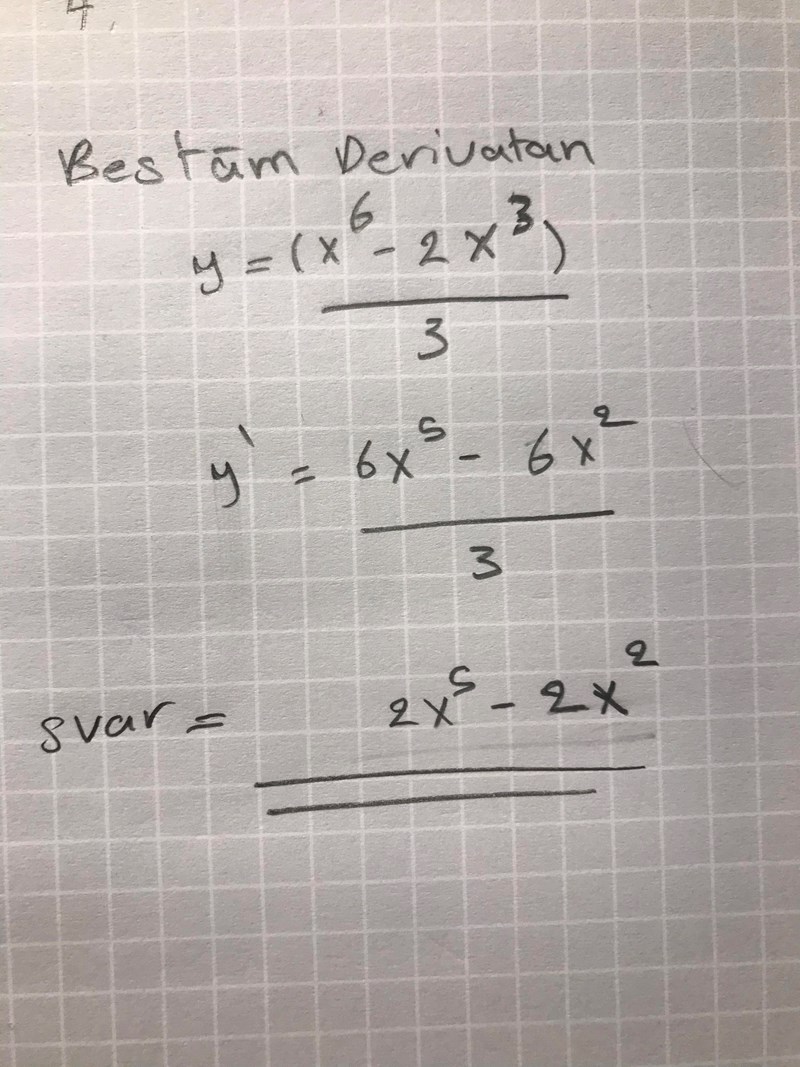 4.
Bestäm Derivatan
y = (x⁶ - 2x³)
3
y' = 6x⁵ - 6x²
3
svar = 2x⁵ - 2x²